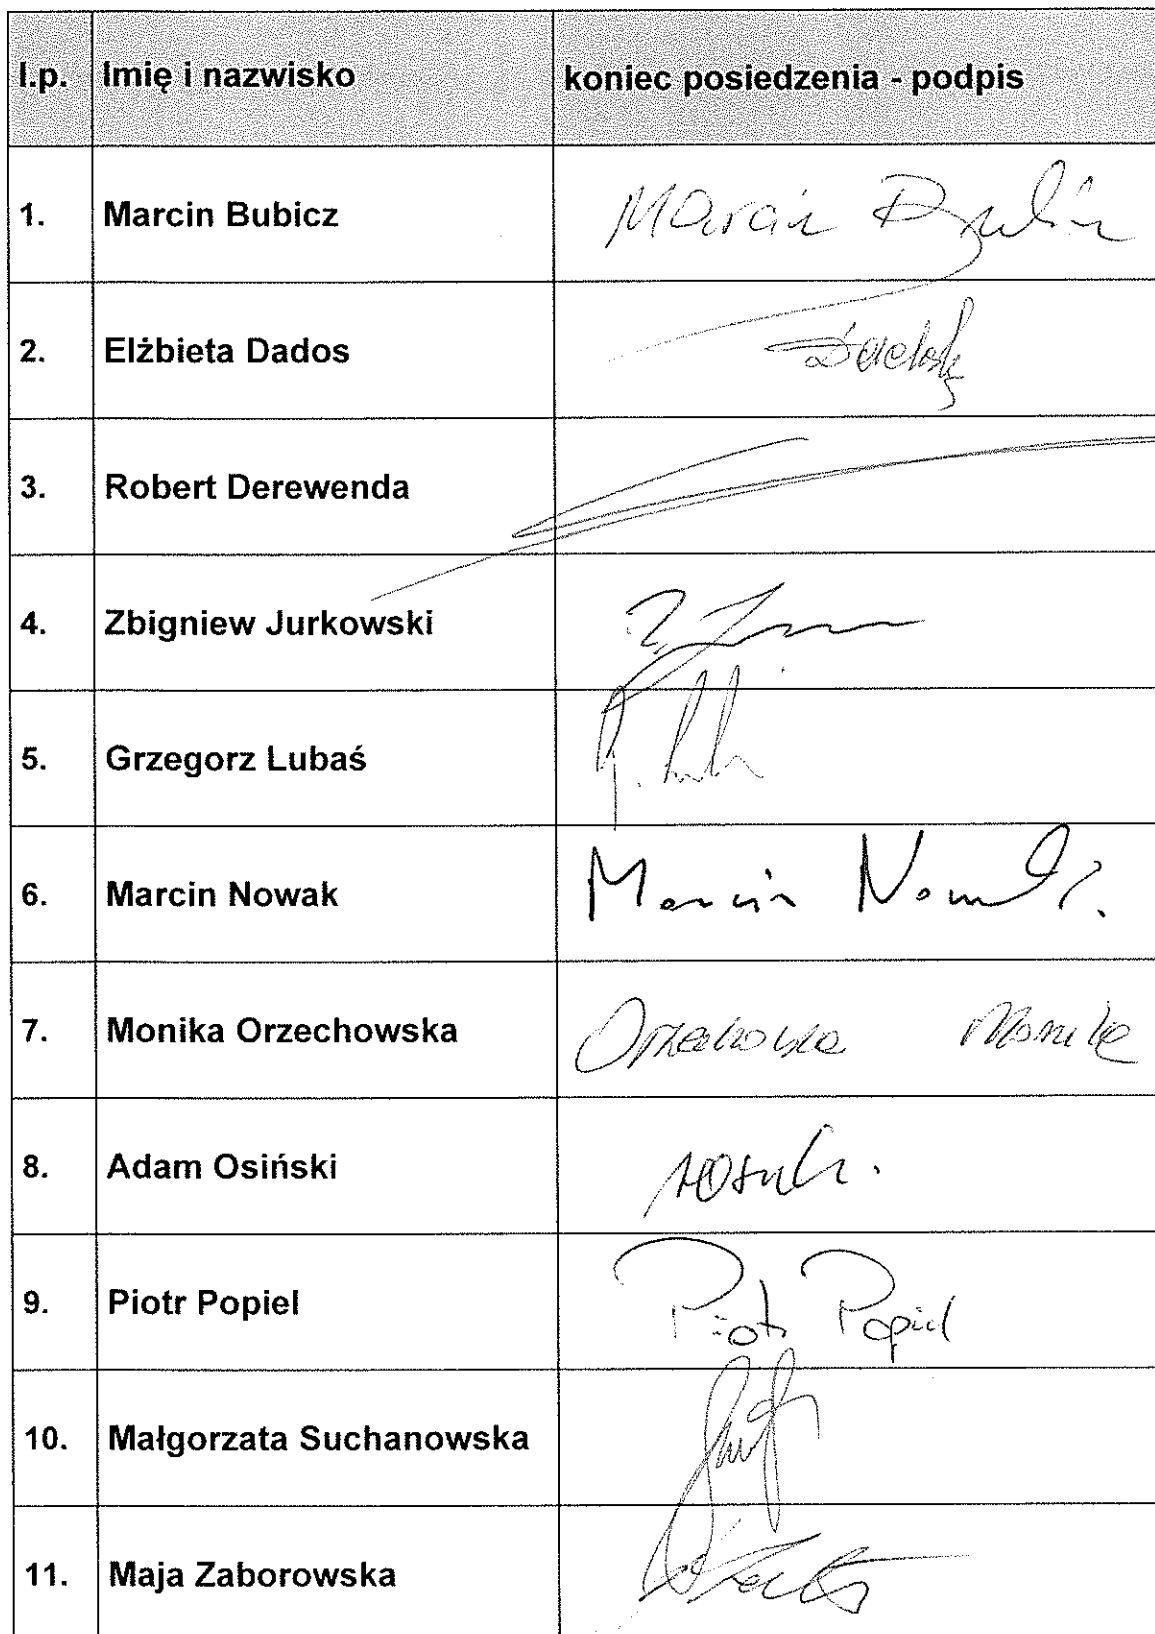 l.p. Imię i nazwisko koniec posiedzenia - podpis
1. Marcin Bubicz Marcin
2. Elżbieta Dados
3. Robert Derewenda
4. Zbigniew Jurkowski
5. Grzegorz Lubaś
6. Marcin Nowak Marcin Nowak
7. Monika Orzechowska Orzechowska Monika
8. Adam Osiński
9. Piotr Popiel Piotr Popiel
10. Małgorzata Suchanowska
11. Maja Zaborowska